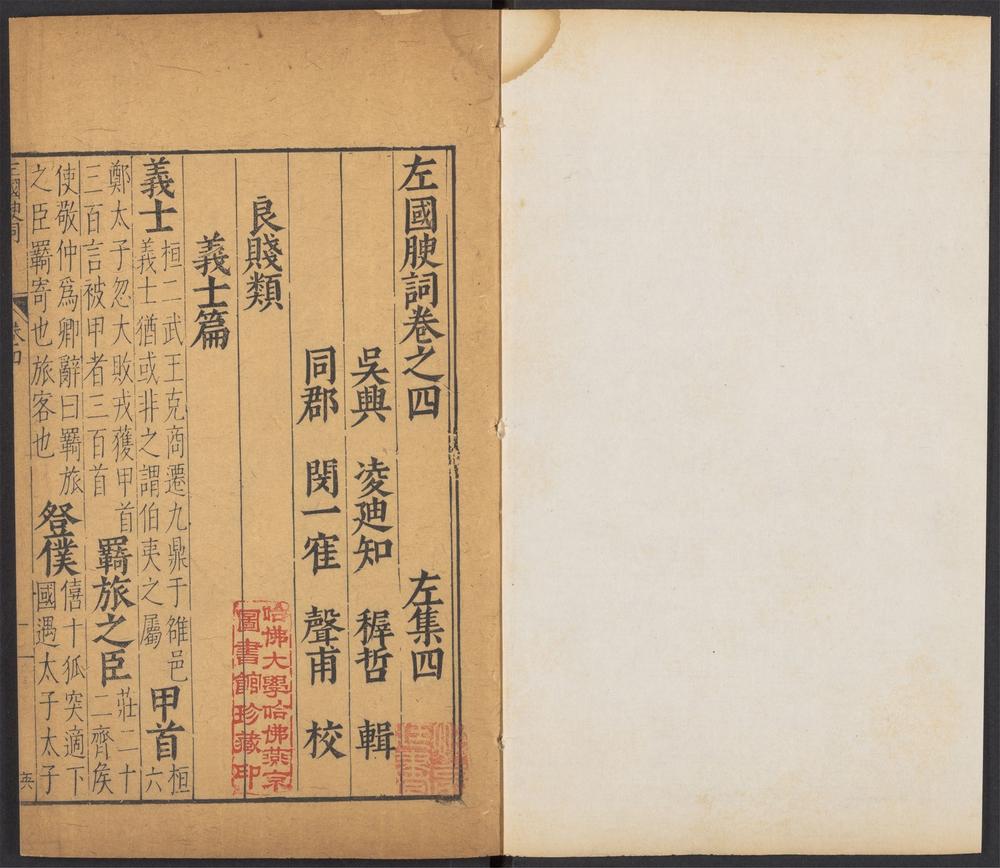 左國腴詞卷之四　左集四
吳興　凌迪知　穉哲　輯
同郡　閔一𨾏　聲甫　校
良賤類
義士篇
義士　桓二武王克商遷九鼎于雒邑
義士猶或非之謂伯夷之屬　甲首　桓六
鄭太子忽大敗戎獲甲首
三百言被甲者三百首　羇旅之臣　莊二十二齊侯
使敬仲爲卿辭曰羇旅
之臣羇寄也旅客也　登僕　僖十狐突適下
國遇太子太子
卷四
英
哈佛大學哈佛燕京
圖書館珍藏印